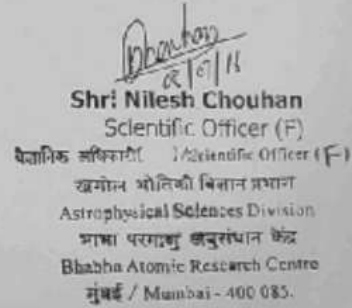 Shri Nilesh Chouhan
Scientific Officer (F)
वैज्ञानिक अधिकारी /Scientific Officer (F)
खगोल भौतिकी विज्ञान प्रभाग
Astrophysical Sciences Division
भाभा परमाणु अनुसंधान केंद्र
Bhabha Atomic Research Centre
मुंबई / Mumbai - 400 085.